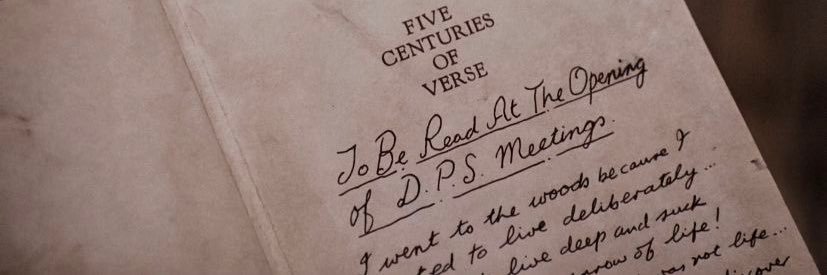 FIVE
CENTURIES
OF
VERSE
To Be Read At The Opening
of D.P.S. Meetings.
I went to the woods because I
ted to live deliberately...
live deep and suck
rrow of life!
as not life...
discover